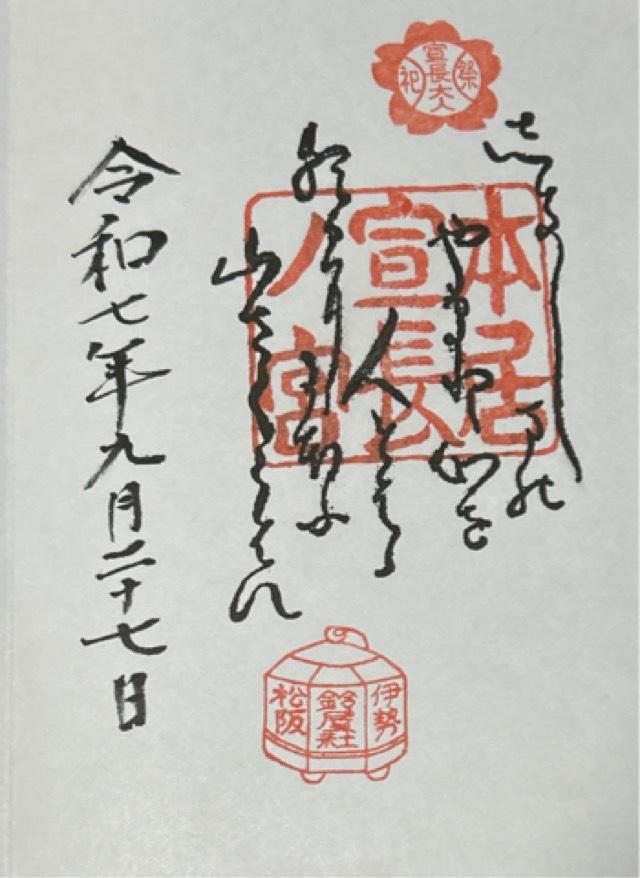 祭
宣長大人
祀
本居
宣長
ノ宮
志きしまの
やまと心を
人とはゝ
朝日ににほふ
山さくらはな
令和七年九月二十七日
伊勢
鈴屋社
松阪